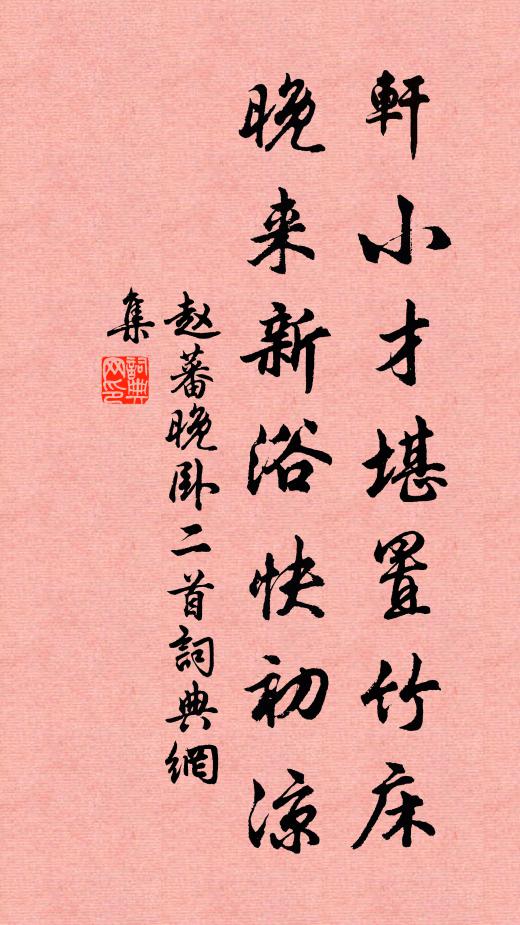 軒小才堪置竹床
晚来新浴快初涼
赵蕃晚卧二首詞典網
集
詞典网印